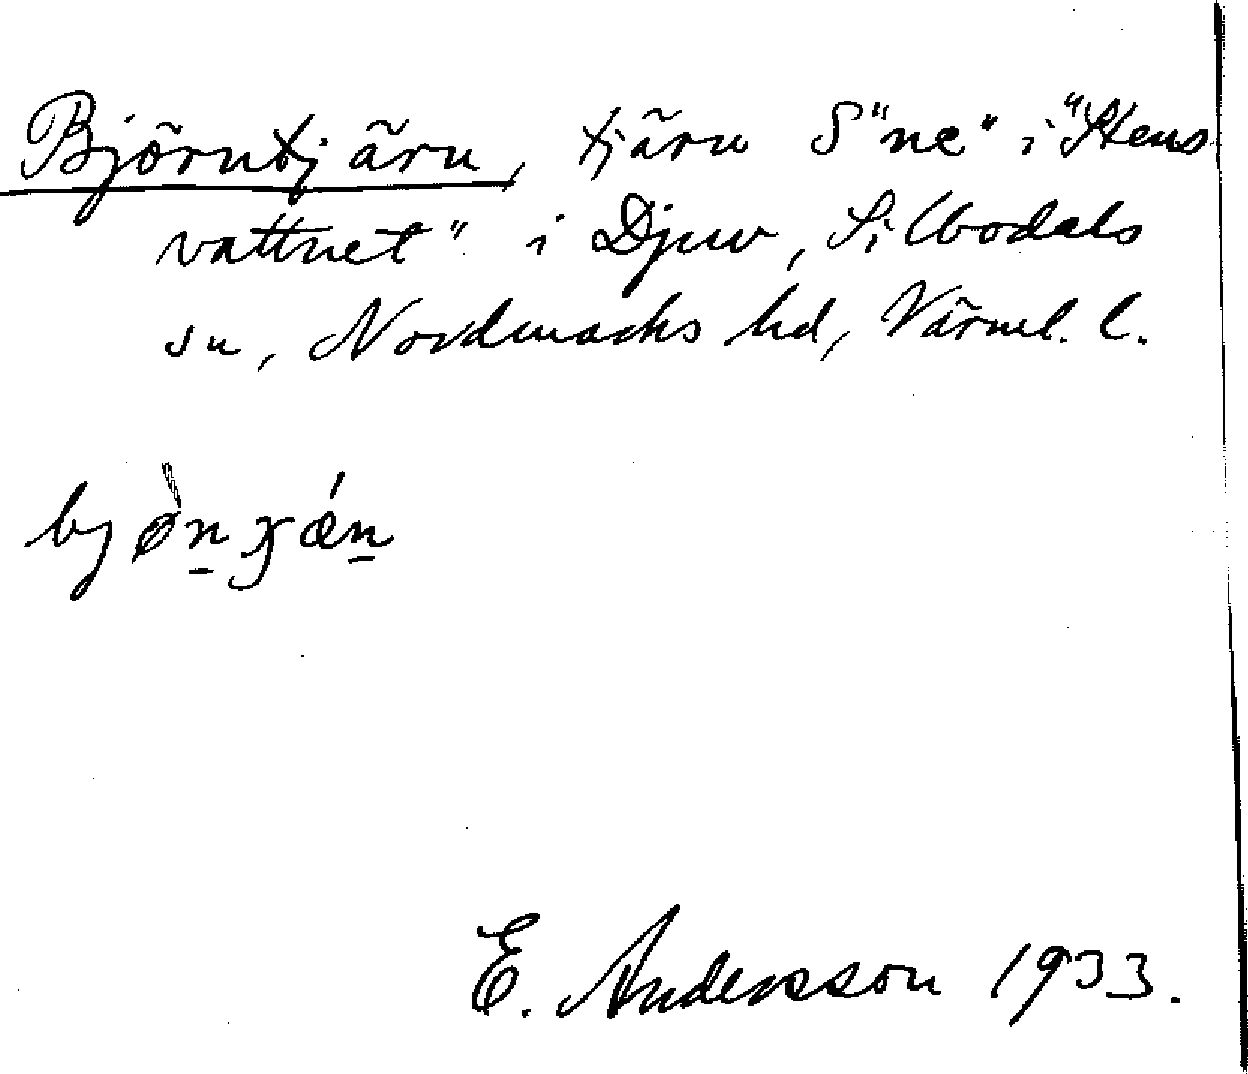 Björntjärn, tjärn S "ne" i "Stens
vattnet" i Djuv, Silbodals
sn, Nordmarks hd, Värml. l.
E. Andersson 1933.